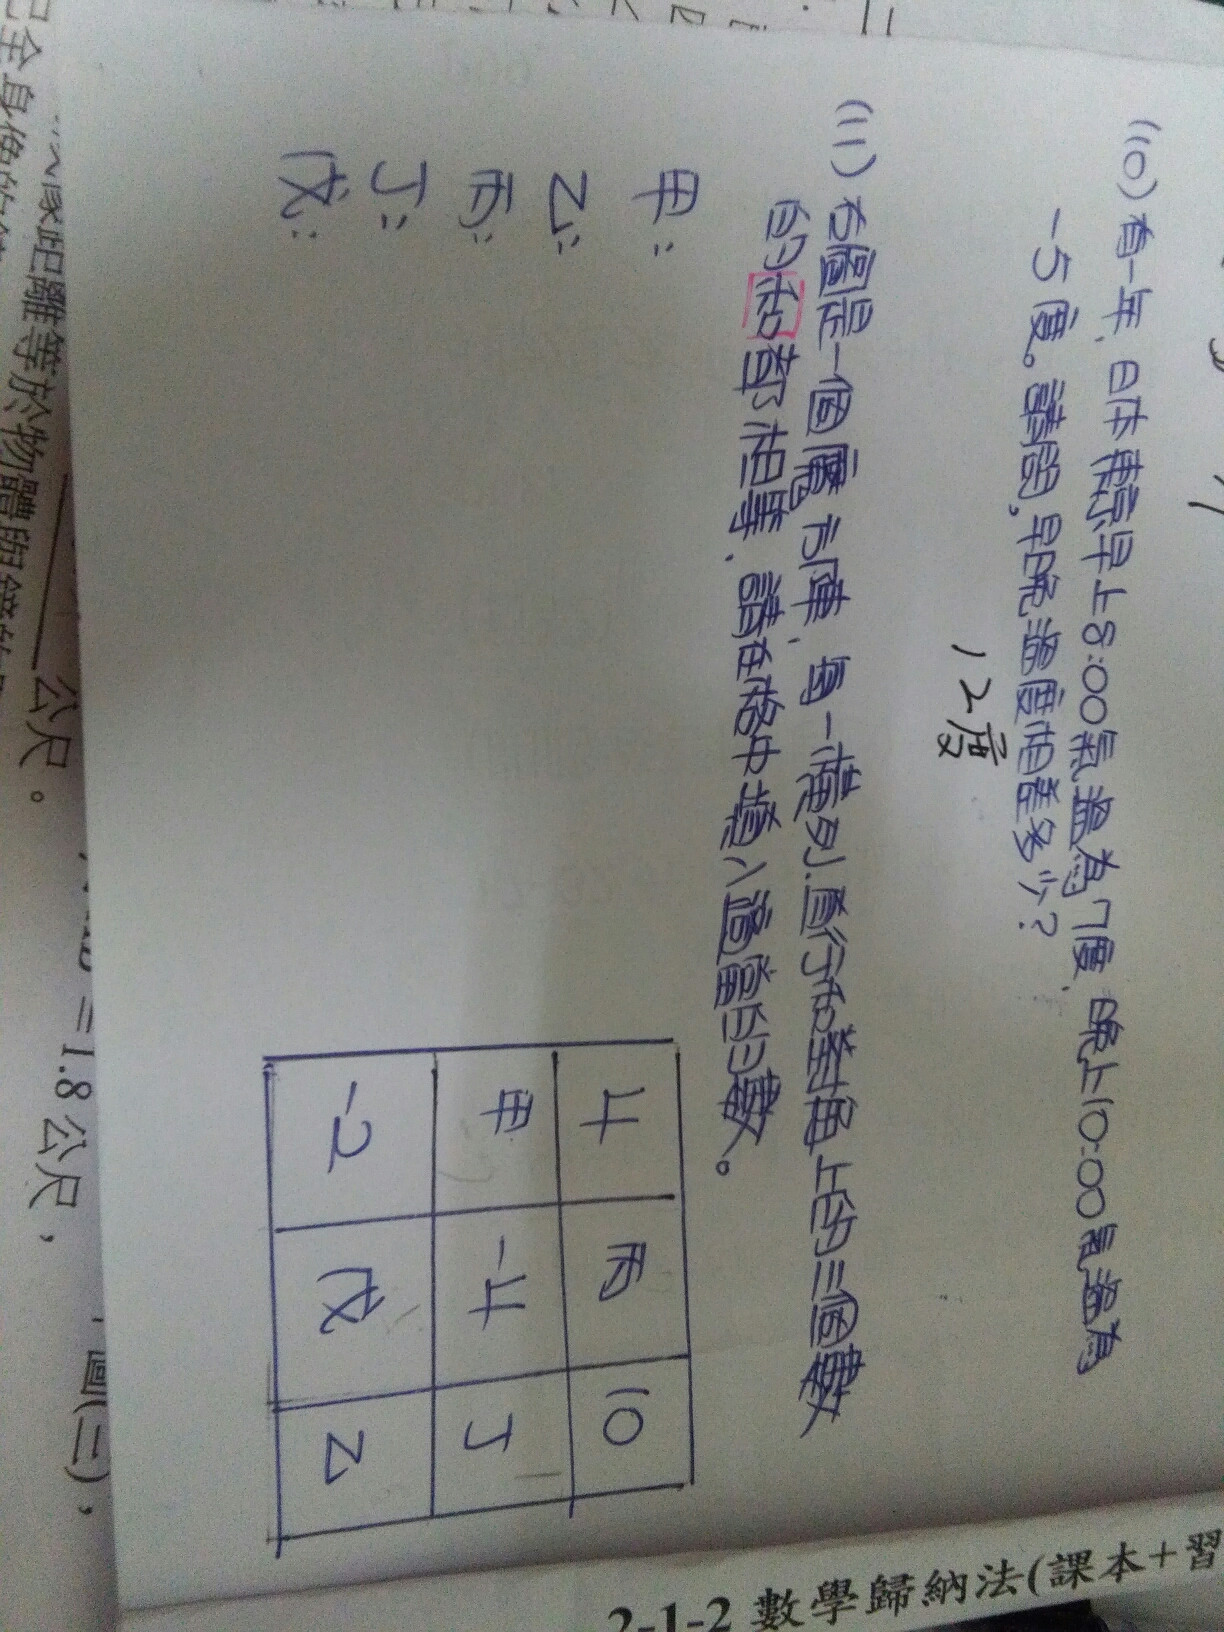 (10) 有一年、日本東京早上8:00氣溫為7度、晚上10:00氣溫為
-5度。請問,早晚溫度相差多少?
12度
(11) 右圖是一個魔方陣、每一橫列.直行和對角上的三個數
的和都相等、請在格中填入適當的數。
甲:
乙:
丙:
丁:
戊:
4 丙 10
甲 -4 丁
-2 戊 乙
起離等於物體與
公尺。
=1.8公尺,
圖(三),
2-1-2 數學歸納法(課本+習